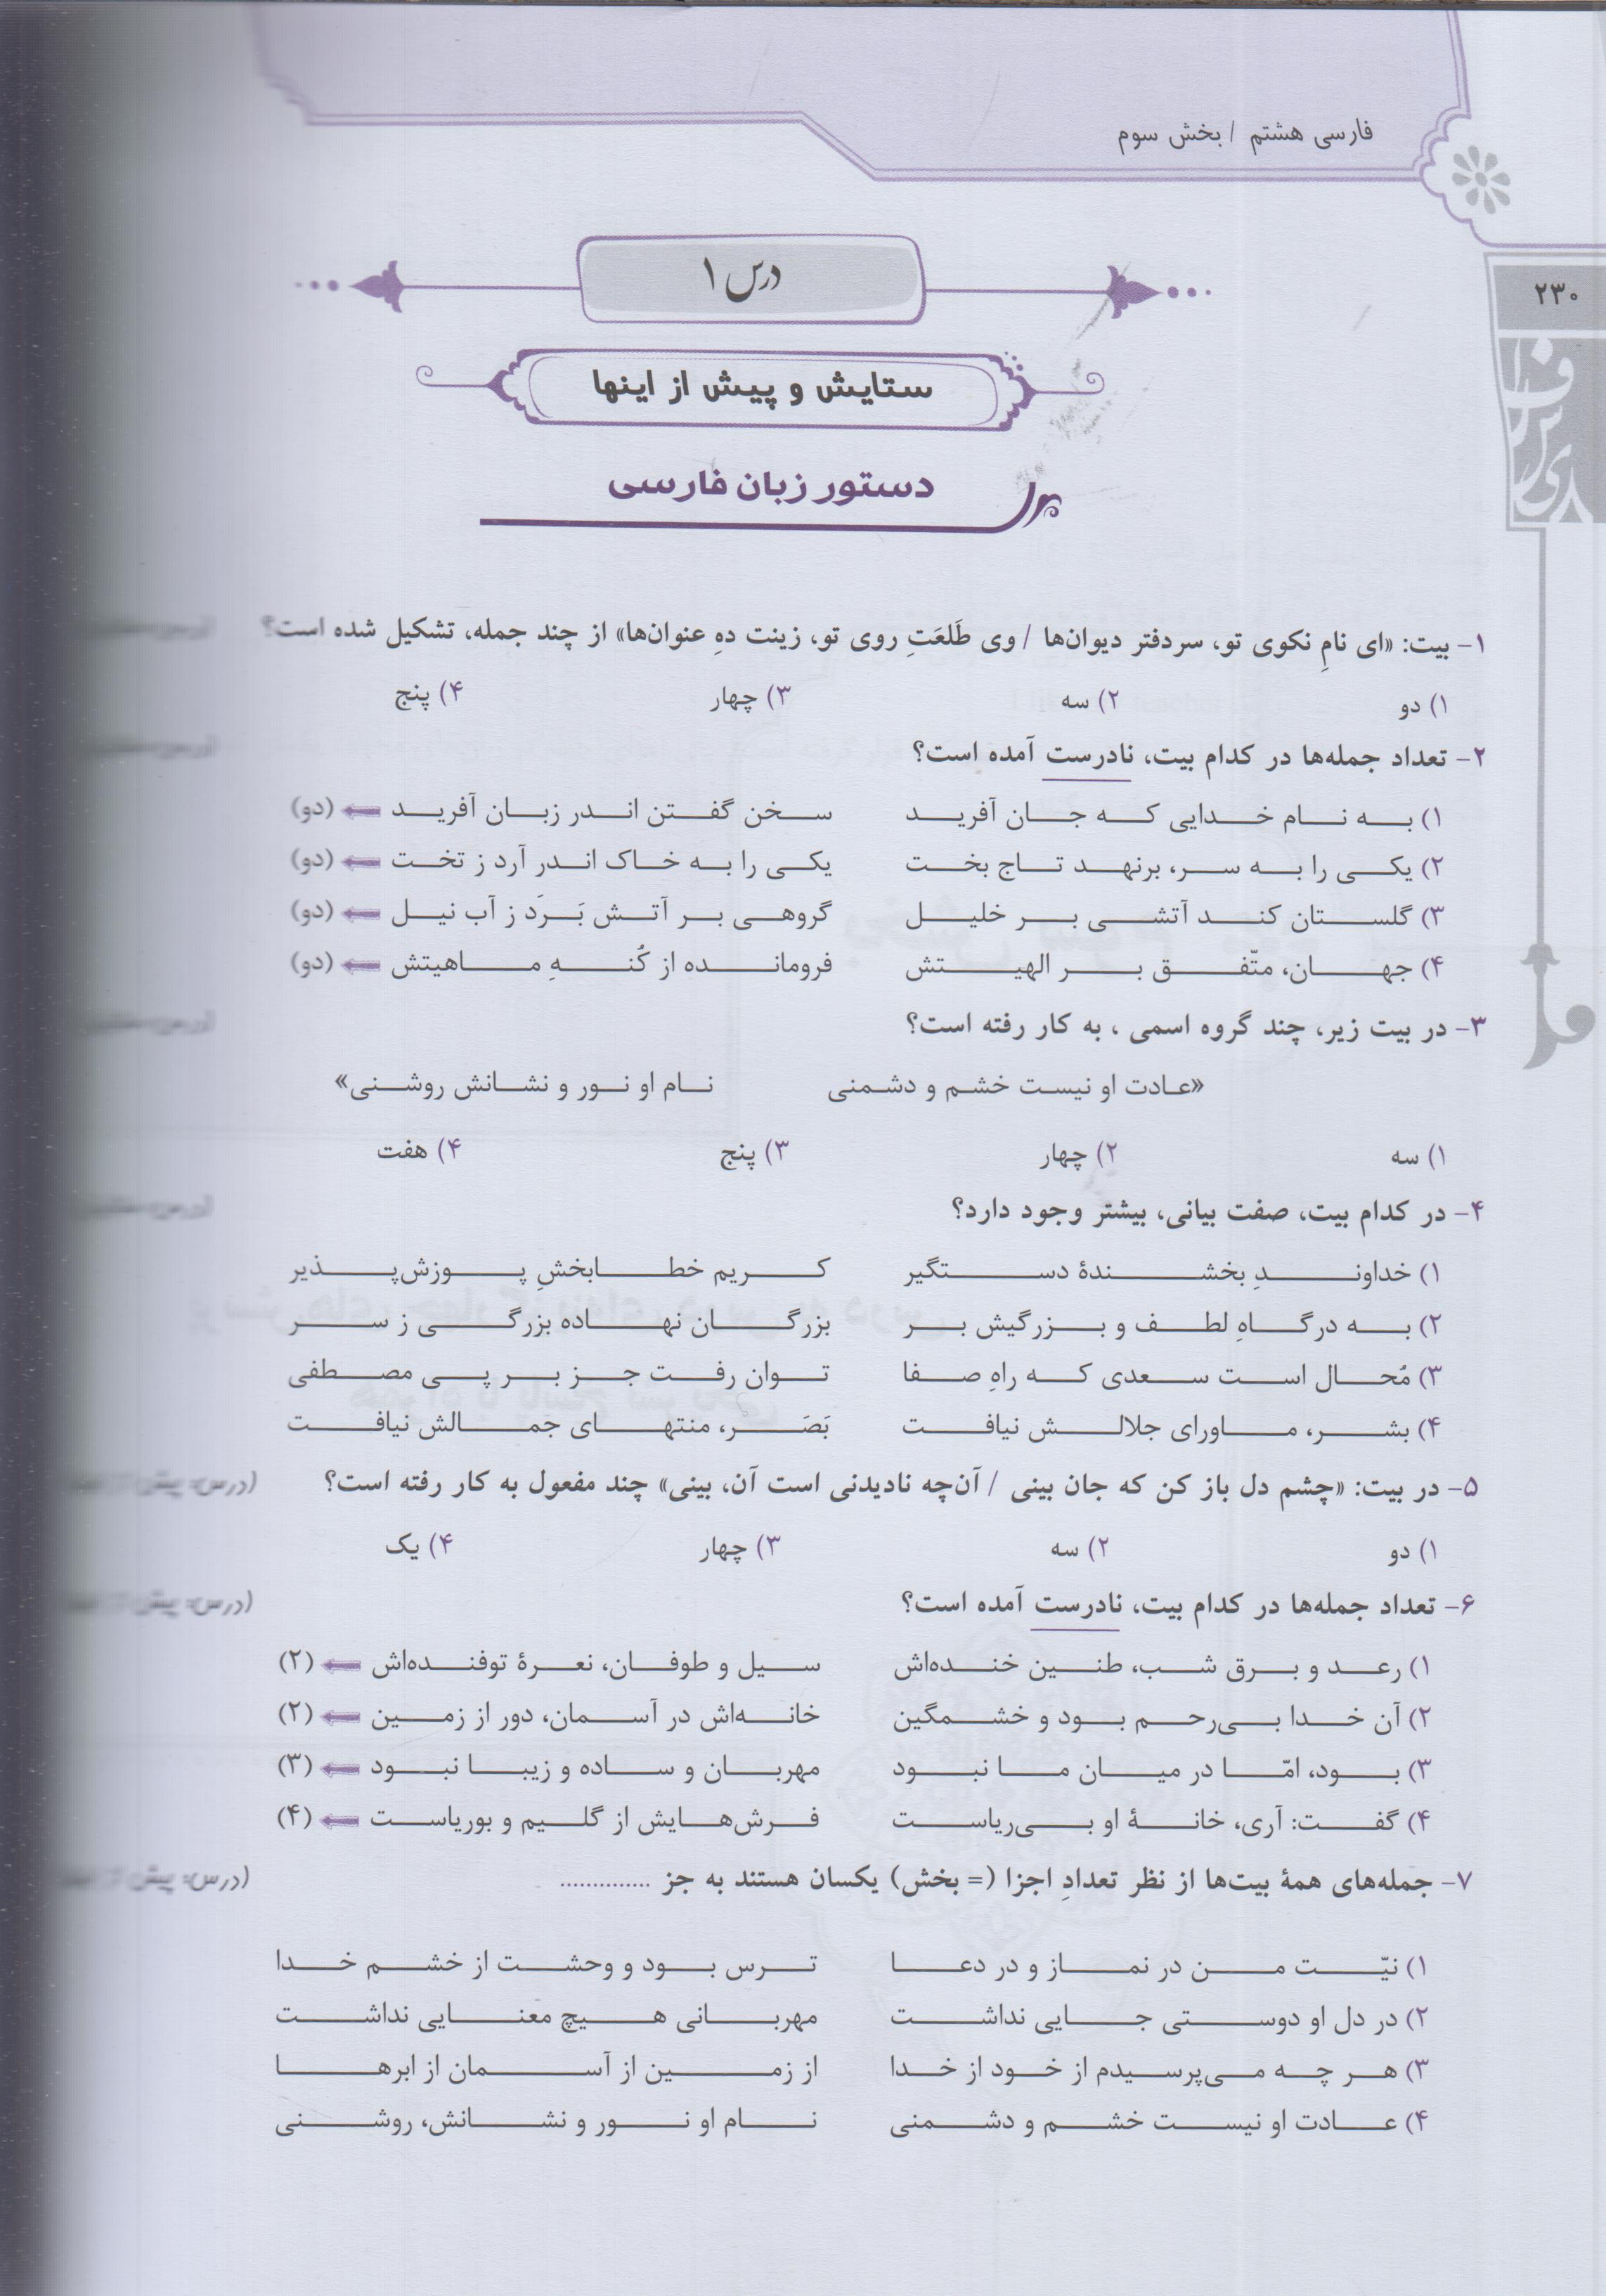 فارسی هشتم / بخش سوم
۲۳۰
درس ۱
ستایش و پیش از اینها
دستور زبان فارسی
۱- بیت: «ای نامِ نکوی تو، سردفتر دیوان‌ها / وی طَلعَتِ روی تو، زینت دهِ عنوان‌ها» از چند جمله، تشکیل شده است؟
۱) دو ۲) سه ۳) چهار ۴) پنج
۲- تعداد جمله‌ها در کدام بیت، نادرست آمده است؟
۱) به نام خدایی که جان آفرید سخن گفتن اندر زبان آفرید (دو)
۲) یکی را به سر، برنهد تاج بخت یکی را به خاک اندر آرد ز تخت (دو)
۳) گلستان کند آتشی بر خلیل گروهی بر آتش بَرَد ز آب نیل (دو)
۴) جهان، متّفق بر الهیتش فرومانده از کُنهِ ماهیتش (دو)
۳- در بیت زیر، چند گروه اسمی ، به کار رفته است؟
«عادت او نیست خشم و دشمنی نام او نور و نشانش روشنی»
۱) سه ۲) چهار ۳) پنج ۴) هفت
۴- در کدام بیت، صفت بیانی، بیشتر وجود دارد؟
۱) خداوندِ بخشندهٔ دستگیر کریم خطابخشِ پوزش‌پذیر
۲) به درگاهِ لطف و بزرگیش بر بزرگان نهاده بزرگی ز سر
۳) مُحال است سعدی که راهِ صفا توان رفت جز بر پی مصطفی
۴) بشر، ماورای جلالش نیافت بَصَر، منتهای جمالش نیافت
۵- در بیت: «چشم دل باز کن که جان بینی / آن‌چه نادیدنی است آن، بینی» چند مفعول به کار رفته است؟
۱) دو ۲) سه ۳) چهار ۴) یک
۶- تعداد جمله‌ها در کدام بیت، نادرست آمده است؟
۱) رعد و برق شب، طنین خنده‌اش سیل و طوفان، نعرهٔ توفنده‌اش (۲)
۲) آن خدا بی‌رحم بود و خشمگین خانه‌اش در آسمان، دور از زمین (۲)
۳) بود، امّا در میان ما نبود مهربان و ساده و زیبا نبود (۳)
۴) گفت: آری، خانهٔ او بی‌ریاست فرش‌هایش از گلیم و بوریاست (۴)
۷- جمله‌های همهٔ بیت‌ها از نظر تعدادِ اجزا (= بخش) یکسان هستند به جز ..............
۱) نیّت من در نماز و در دعا ترس بود و وحشت از خشم خدا
۲) در دل او دوستی جایی نداشت مهربانی هیچ معنایی نداشت
۳) هر چه می‌پرسیدم از خود از خدا از زمین از آسمان از ابرها
۴) عادت او نیست خشم و دشمنی نام او نور و نشانش، روشنی